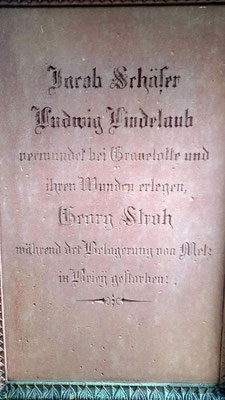 Jacob Schäfer
Ludwig Lindelaub
verwundet bei Gravelotte und
ihren Wunden erlegen,
Georg Stroh
während der Belagerung von Metz
in Briey gestorben.